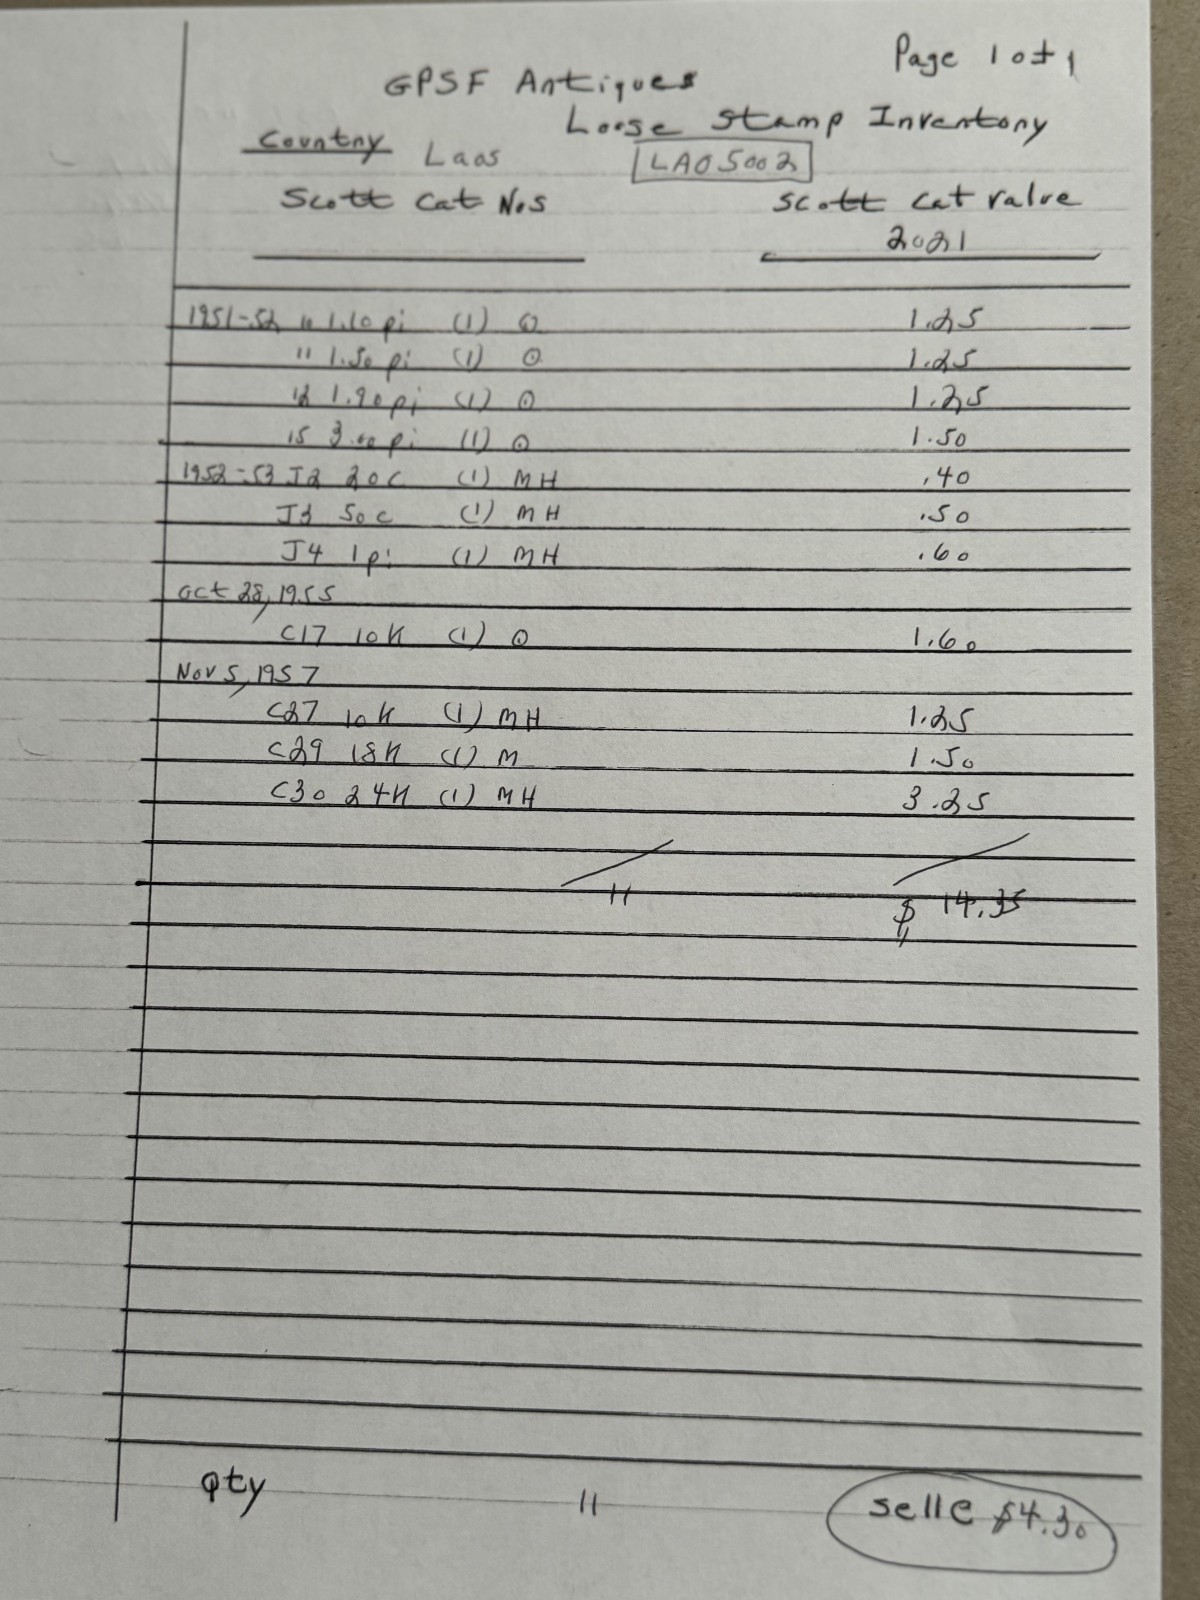 Page 1 of 1
GPSF Antiques
Loose Stamp Inventory
Country Laos
LAOS002
Scott Cat Nos Scott Cat Value
2021
1951-52 10 1.10 pi (1) ⊙ 1.25
11 1.50 pi (1) ⊙ 1.25
12 1.90 pi (1) ⊙ 1.25
15 3.00 pi (1) ⊙ 1.50
1952-53 J2 20c (1) MH .40
J3 50c (1) MH .50
J4 1 pi (1) MH .60
Oct 28, 1955
C17 10K (1) ⊙ 1.60
Nov 5, 1957
C27 10K (1) MH 1.25
C29 18K (1) M 1.50
C30 24K (1) MH 3.25
11 $ 14.35
qty 11 selle $4.30